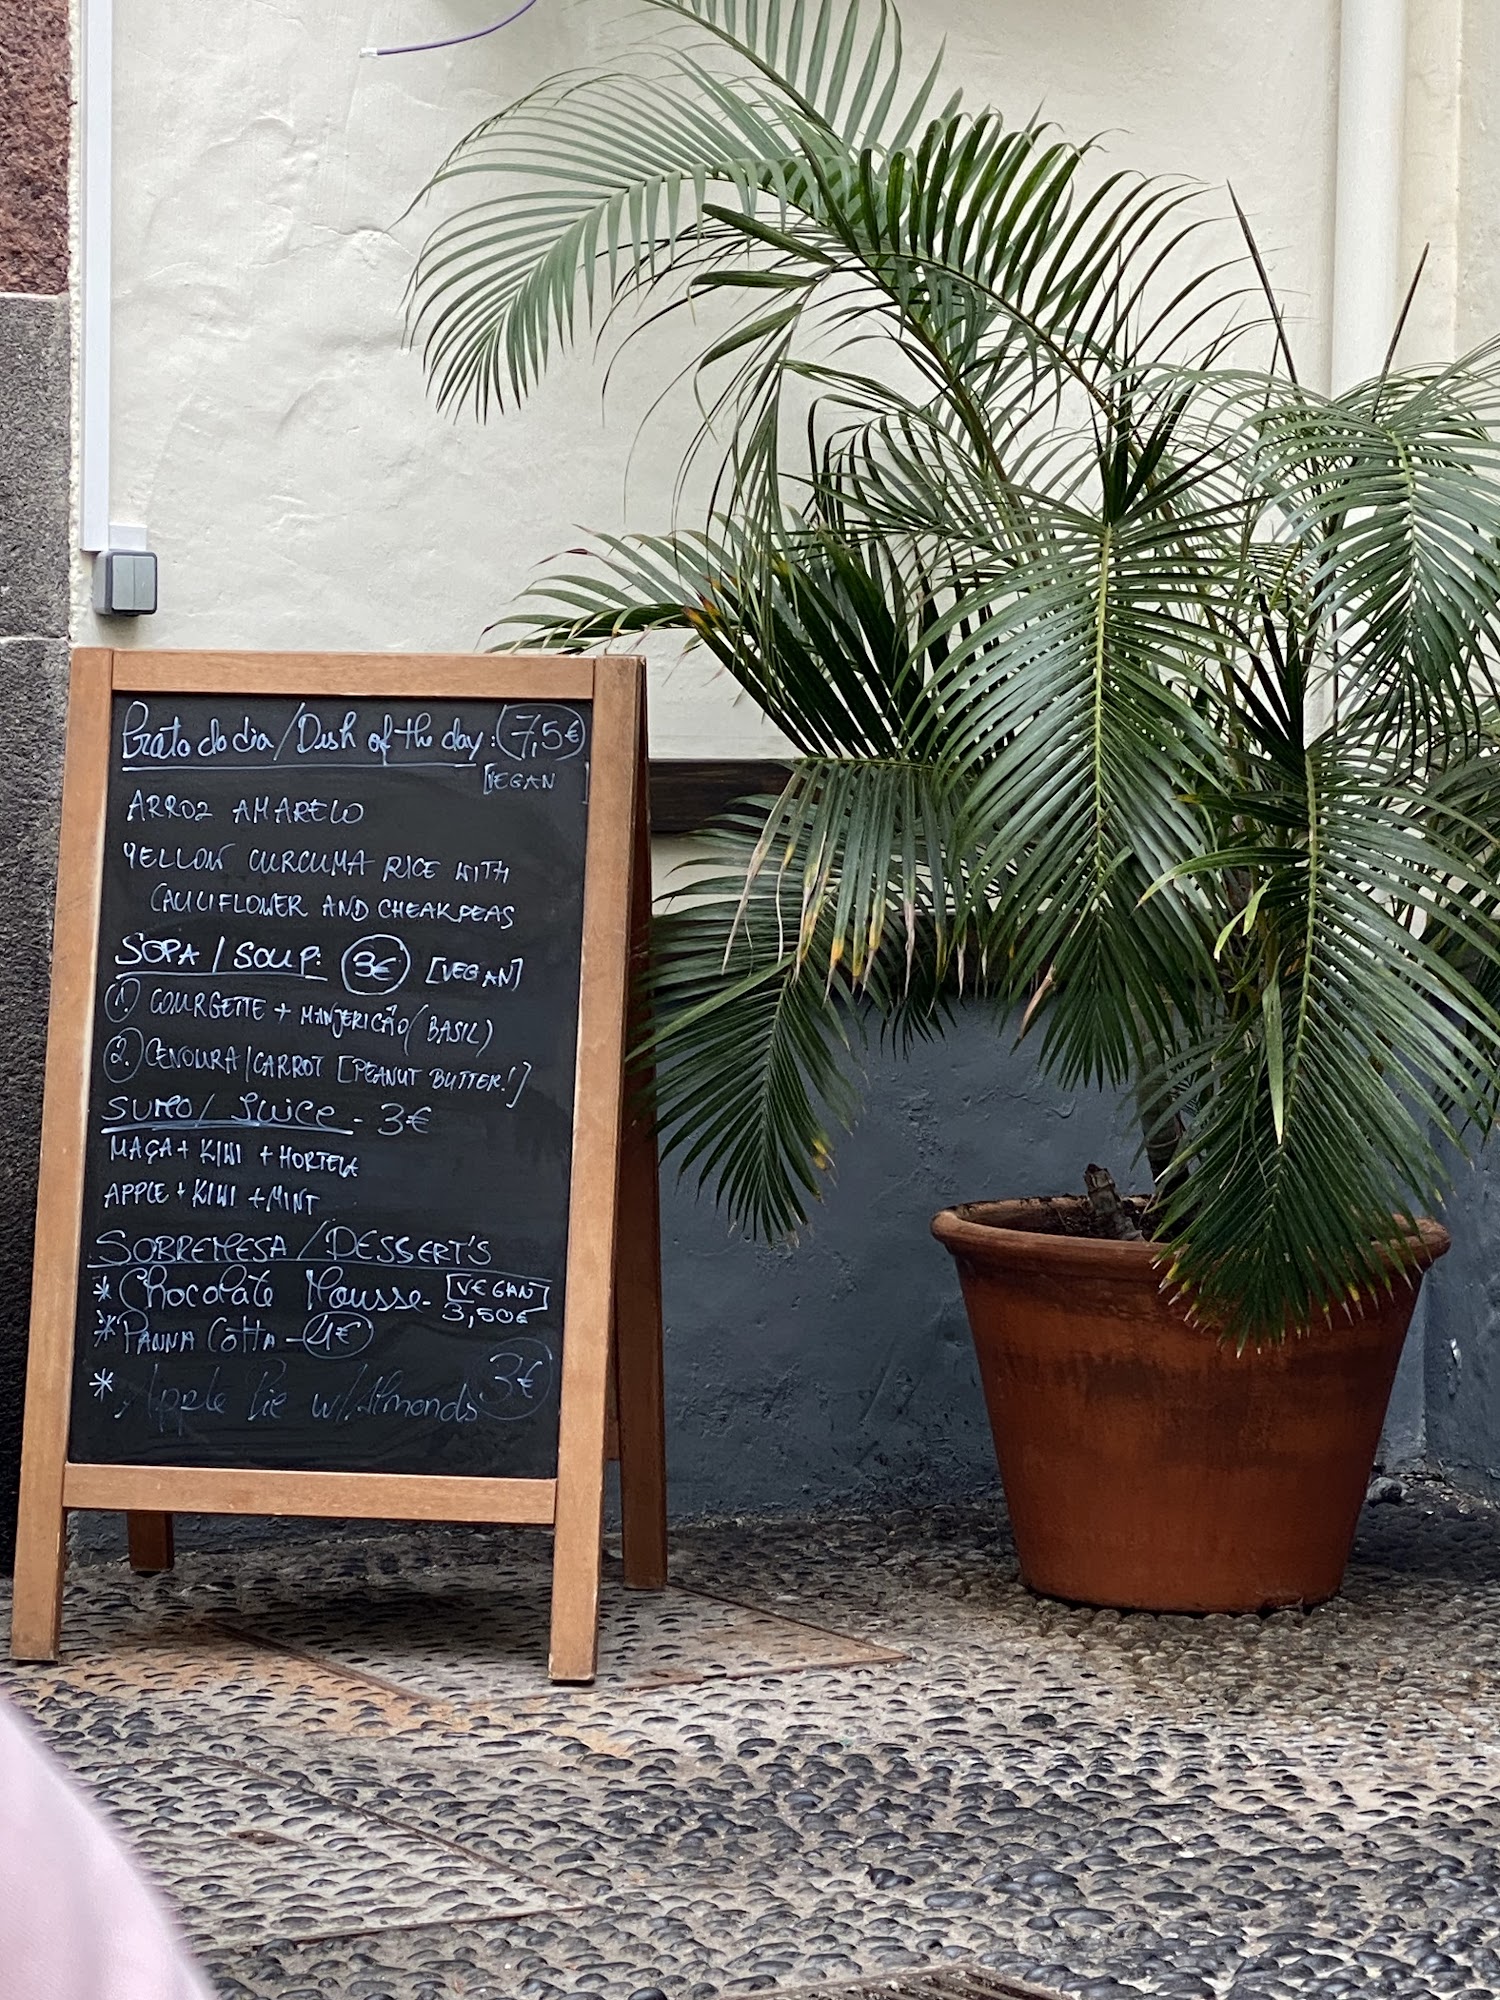 Prato do dia / Dish of the day : 7,5€
[VEGAN]
ARROZ AMARELO
YELLOW CURCUMA RICE WITH
CAULIFLOWER AND CHEAKPEAS
SOPA / SOUP: 3€ [VEGAN]
1. COURGETTE + MANJERICÃO (BASIL)
2. CENOURA / CARROT [PEANUT BUTTER!]
SUMO / JUICE - 3€
MAÇA + KIWI + HORTELA
APPLE + KIWI + MINT
SOBREMESA / DESSERT'S
* Chocolate Mousse - [VEGAN] 3,50€
* PANNA COTTA - 4€
* Apple Pie w/ Almonds 3€